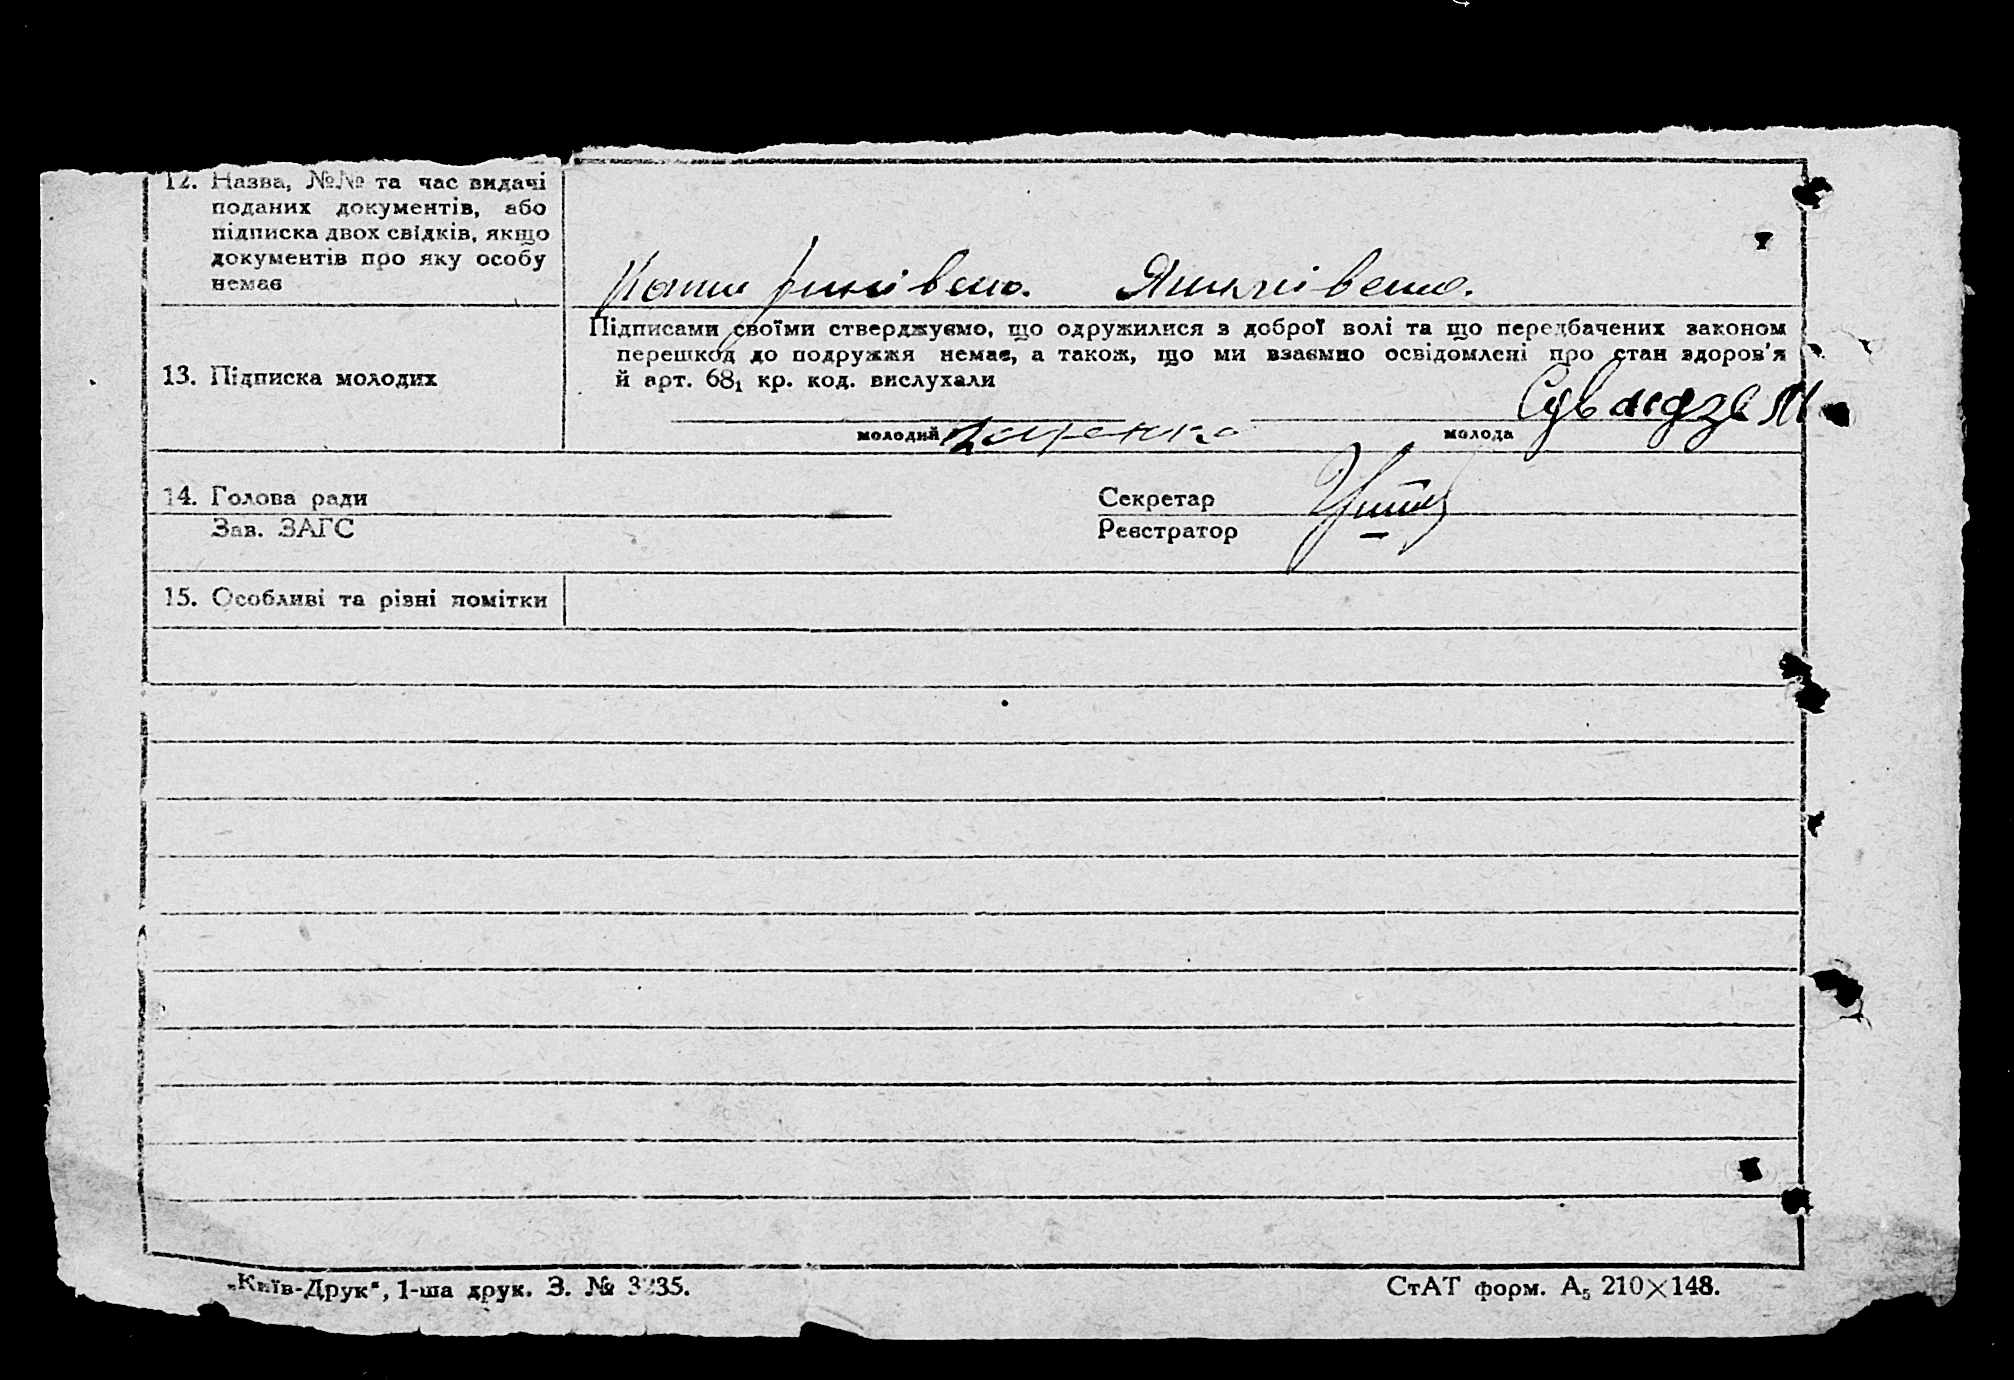 12. Назва, №№ та час видачі
поданих документів, або
підписка двох свідків, якщо
документів про яку особу
немає
13. Підписка молодих
Підписами своїми стверджуємо, що одружилися з доброї волі та що передбачених законом
перешкод до подружжя немає, а також, що ми взаємно освідомлені про стан здоров'я
й арт. 68₁ кр. код. вислухали
молодий
молода
14. Голова ради
Секретар
Зав. ЗАГС
Реєстратор
15. Особливі та різні помітки
„Київ-Друк“, 1-ша друк. З. №
СтАТ форм. А₅ 210×148.